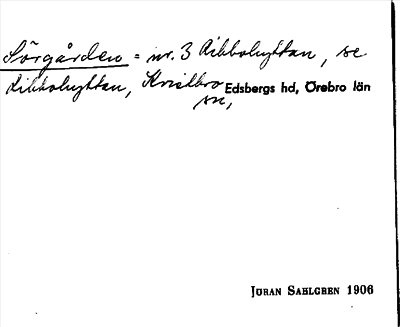 Sörgården = nr. 3 Ribbohyttan, se
Ribbohyttan, Kvistbro Edsbergs hd, Örebro län
sn,
JÖRAN SAHLGREN 1906